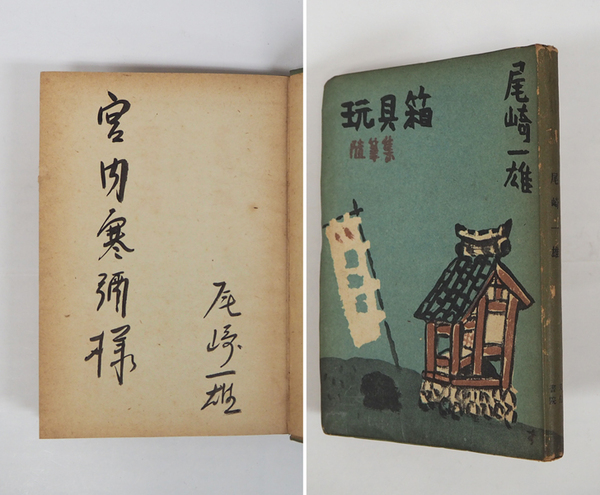 宮内寒彌様
尾崎一雄
尾崎一雄
玩具箱
随筆集
尾崎一雄